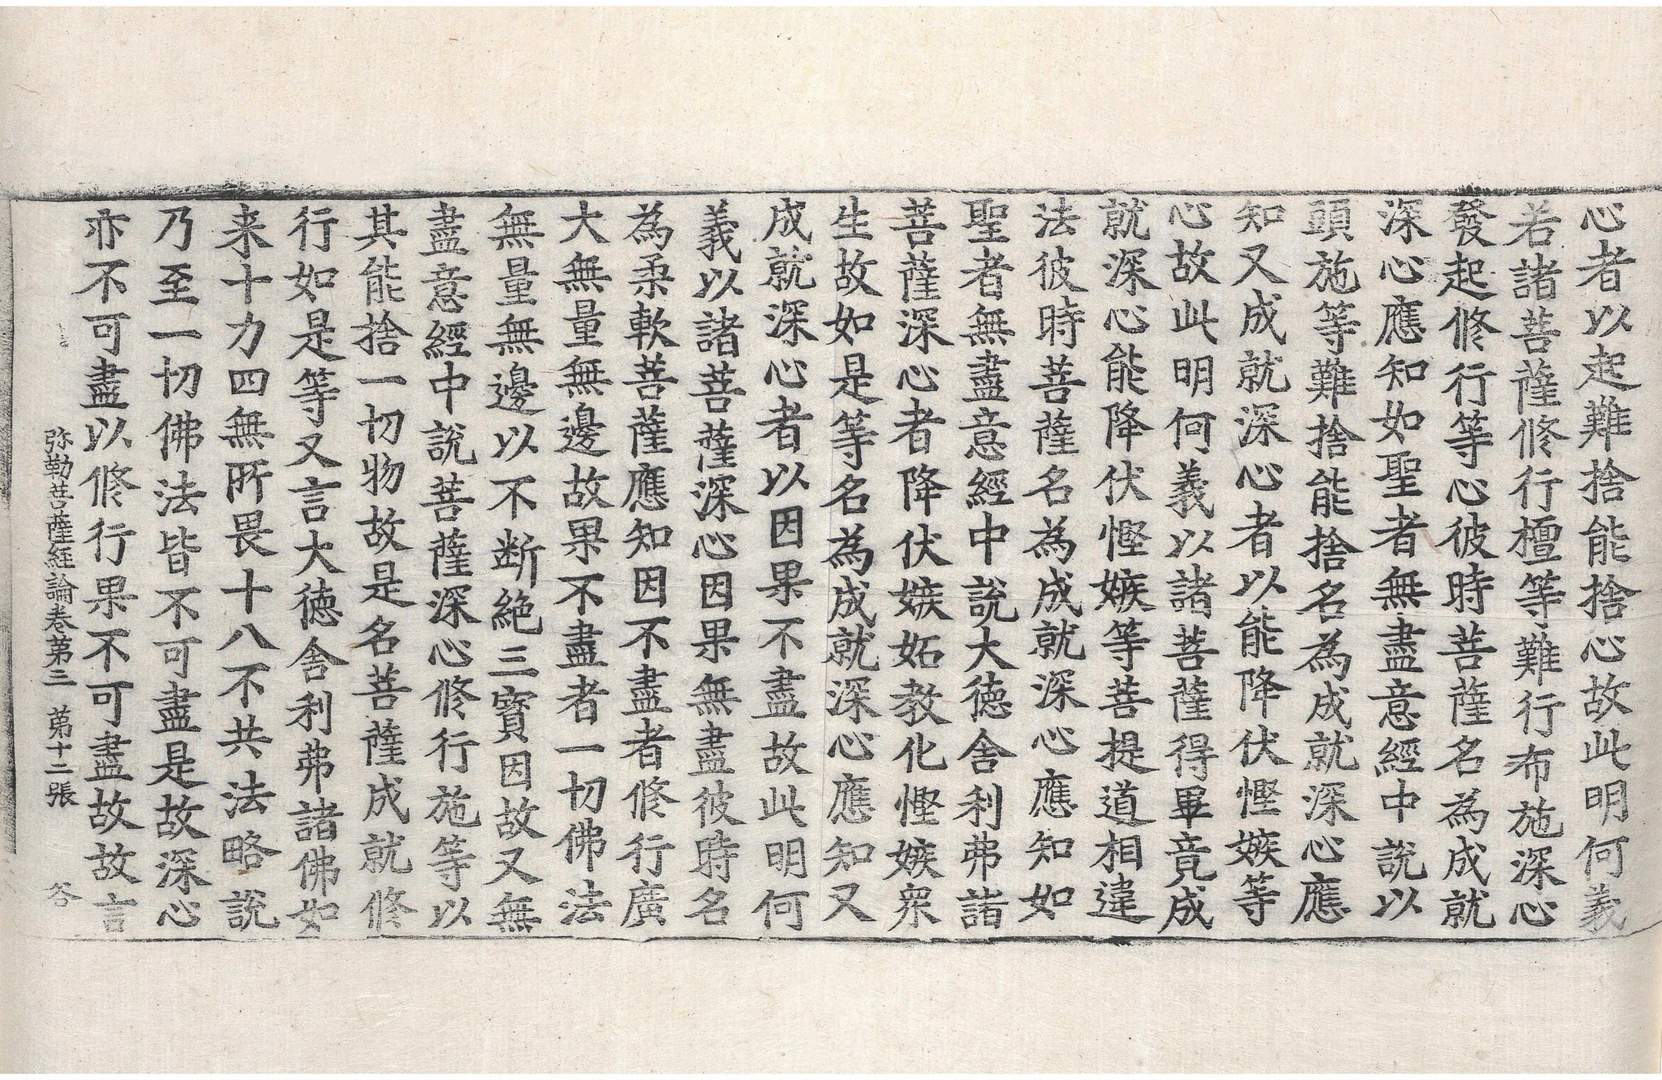 心者以起難捨能捨心故此明何義
若諸菩薩修行檀等難行布施深心
發起修行等心彼時菩薩名為成就
深心應知如聖者無盡意經中說以
頭施等難捨能捨名為成就深心應
知又成就深心者以能降伏慳嫉等
心故此明何義以諸菩薩得畢竟成
就深心能降伏慳嫉等菩提道相違
法彼時菩薩名為成就深心應知如
聖者無盡意經中說大德舍利弗諸
菩薩深心者降伏嫉妬教化慳嫉衆
生故如是等名為成就深心應知又
成就深心者以因果不盡故此明何
義以諸菩薩深心因果無盡彼時名
為柔軟菩薩應知因不盡者修行廣
大無量無邊故果不盡者一切佛法
無量無邊以不断絕三寶因故又無
盡意經中說菩薩深心修行施等以
其能捨一切物故是名菩薩成就修
行如是等又言大德舍利弗諸佛如
来十力四無所畏十八不共法略說
乃至一切佛法皆不可盡是故深心
亦不可盡以修行果不可盡故故言
弥勒菩薩経論卷第三 第十二張